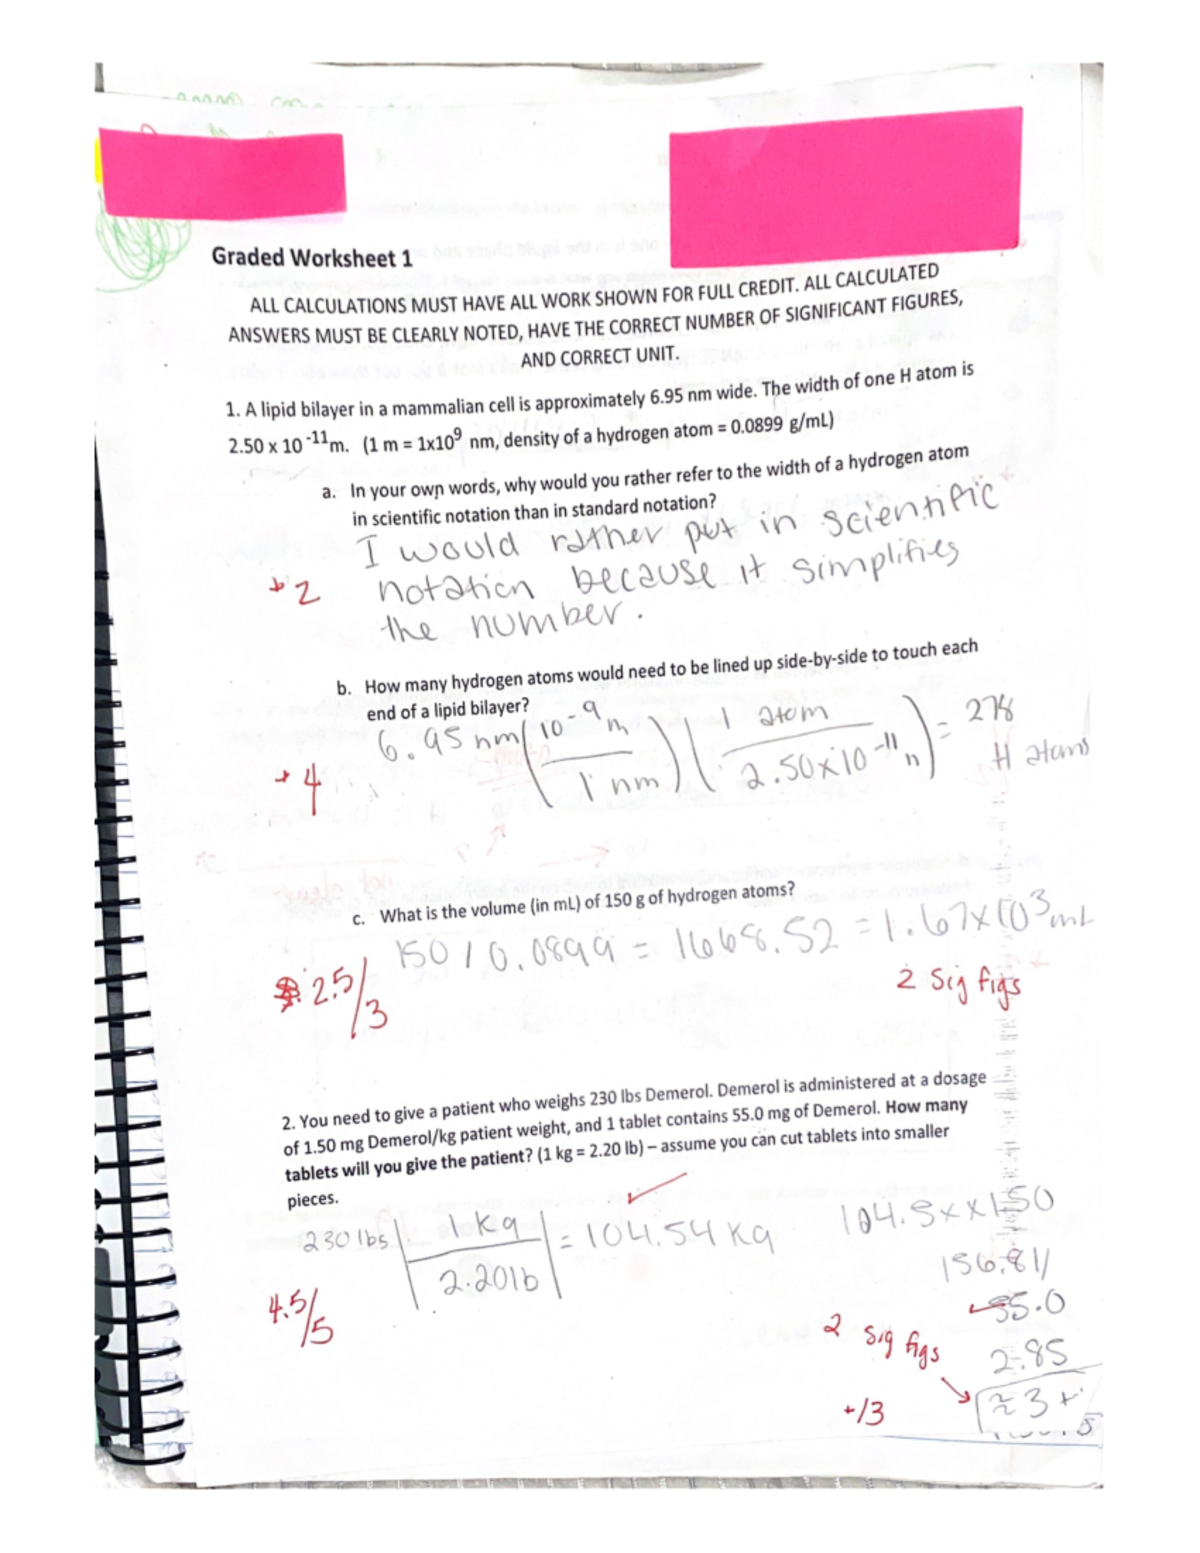 Graded Worksheet 1
ALL CALCULATIONS MUST HAVE ALL WORK SHOWN FOR FULL CREDIT. ALL CALCULATED
ANSWERS MUST BE CLEARLY NOTED, HAVE THE CORRECT NUMBER OF SIGNIFICANT FIGURES,
AND CORRECT UNIT.
1. A lipid bilayer in a mammalian cell is approximately 6.95 nm wide. The width of one H atom is
2.50 x 10⁻¹¹m. (1 m = 1x10⁹ nm, density of a hydrogen atom = 0.0899 g/mL)
a. In your own words, why would you rather refer to the width of a hydrogen atom
in scientific notation than in standard notation?
I would rather put in scientific
notation because it simplifies
the number.
+2
b. How many hydrogen atoms would need to be lined up side-by-side to touch each
end of a lipid bilayer?
6.95 nm (10⁻⁹ m / 1 nm) (1 atom / 2.50x10⁻¹¹ m) = 278
H atoms
+4
c. What is the volume (in mL) of 150 g of hydrogen atoms?
150 / 0.0899 = 1668.52 = 1.67x10³ mL
2.5/3
2 sig figs
2. You need to give a patient who weighs 230 lbs Demerol. Demerol is administered at a dosage
of 1.50 mg Demerol/kg patient weight, and 1 tablet contains 55.0 mg of Demerol. How many
tablets will you give the patient? (1 kg = 2.20 lb) – assume you can cut tablets into smaller
pieces.
230 lbs | 1 kg / 2.20 lb | = 104.54 kg
104.5 x 1.50
156.81/
55.0
2.85
≈ 3
4.5/5
2 sig figs
+13